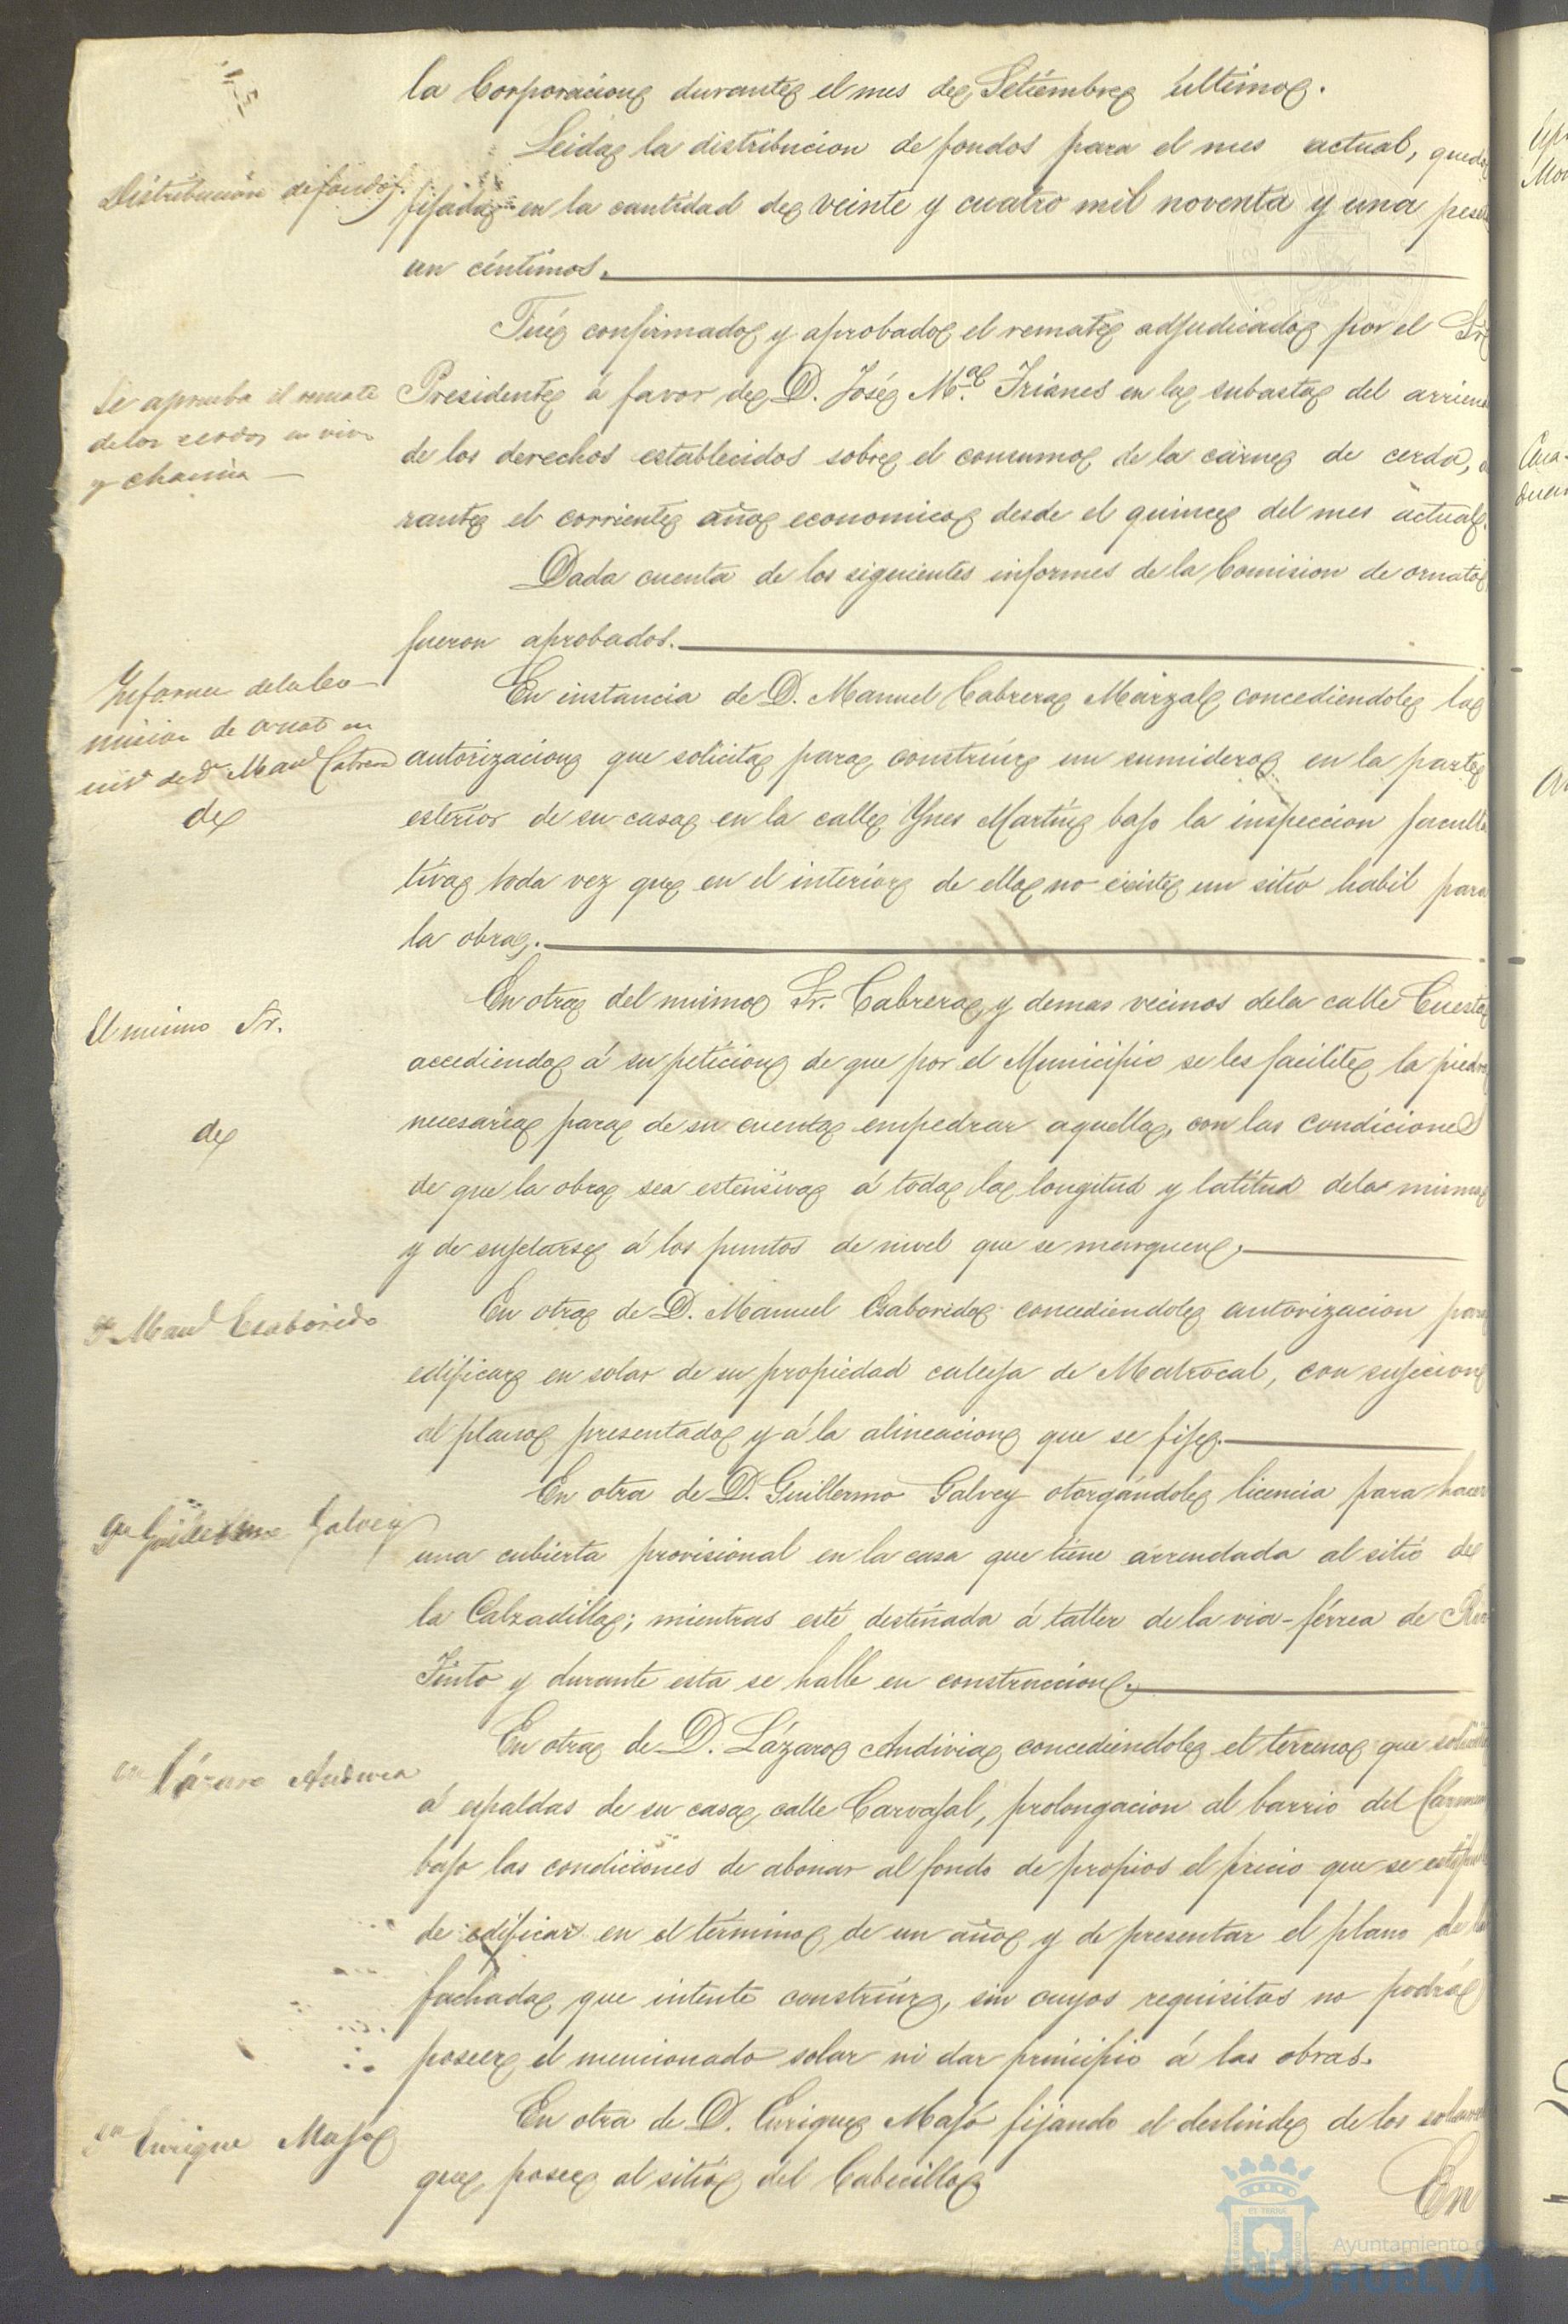 la Corporacion durante el mes de Setiembre último.
Leida la distribucion de fondos para el mes actual, queda
Distribucion de fondos.
fijada en la cantidad de veinte y cuatro mil noventa y una peset
un céntimos.
Fué confirmado y aprobado el remate adjudicado por el Sr.
Se aprueba el remate
de los cerdos en vivo
y chacina
Presidente á favor de D. José M.ª Trianes en la subasta del arrien
de los derechos establecidos sobre el consumo de la carne de cerda,
rante el corriente año economico desde el quince del mes actual.
Dada cuenta de los siguientes informes de la Comision de ornato
fueron aprobados.
Informe de la Co
mision de ornato en
de Dn Manl Cabrera
de
En instancia de D. Manuel Cabrera Marzal concediendole la
autorizacion que solicita para construir un sumidero en la parte
esterior de su casa en la calle Ynes Martin bajo la inspeccion faculta
tiva toda vez que en el interior de ella no existe un sitio habil para
la obra.
El mismo Sr.
de
En otra del mismo Sr. Cabrera y demas vecinos de la calle Cuesta
accediendo á su peticion de que por el Municipio se les facilite la piedra
necesaria para de su cuenta empedrar aquella, con las condiciones
de que la obra sea estensiva á toda la longitud y latitud de la misma
y de sujetarse á los puntos de nivel que se marquen.
Dn Manl Escaborido
En otra de D. Manuel concediendole autorizacion para
edificar en solar de su propiedad calleja de Matrocal, con sujecion
al plano presentado y á la alineacion que se fije.
Dn Guillermo Galvey
En otra de D. Guillermo Galvey otorgándole licencia para hacer
una cubierta provisional en la casa que tiene arrendada al sitio de
la Calzadilla; mientras esté destinada á taller de la via-férrea de Rio
Tinto y durante esta se halle en construccion.
Dn Lázaro Andivia
En otra de D. Lázaro Andivia concediendole el terreno que solicita
á espaldas de su casa calle Carvajal, prolongacion al barrio del Carmen
bajo las condiciones de abonar al fondo de propios el precio que se estipule
de edificar en el término de un año y de presentar el plano de la
fachada que intente construir, sin cuyos requisitos no podrá
poseer el mencionado solar ni dar principio á las obras.
Dn Enrique Majó
En otra de D. Enrique Majó fijando el deslinde de los solares
que posee al sitio del Cabecillo
En
Ayuntamiento de
HUELVA